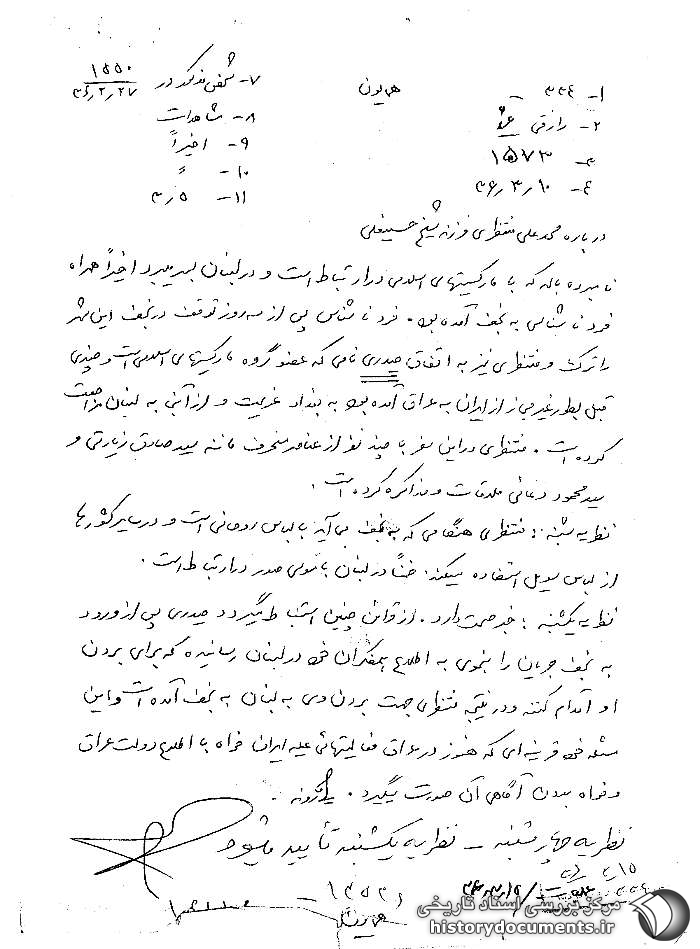 ۱- ۳۳٤
همایون
۲- رازقی
۳- ۱۵۷۳
٤- ۳۶٫۳٫۱۰
۷- شخص مذکور در ۱۵۵۰ ۳۶٫۲٫۲۷
۸- مشاهدات
۹- اخیراً
۱۰- "
۱۱- ۳٫۵
درباره محمد علی منتظری فرزند شیخ حسینعلی
نامبرده بالا که با مارکسیتهای اسلامی در ارتباط است و در لبنان بسر میبرد اخیراً همراه
فرد ناشناسی به نجف آمده بود. فرد ناشناس پس از سه روز توقف در نجف این شهر
را ترک و منتظری نیز به اتفاق حیدری نامی که عضو گروه مارکسیتهای اسلامی است و چندی
قبل بطور غیر مجاز از ایران به عراق آمده بود به بغداد عزیمت و از آنجا به لبنان مراجعت
کرده است. منتظری در این سفر با چند نفر از عناصر منحرف مانند سید صادق زیارتی و
سید محمود دعائی ملاقات و مذاکره کرده است.
نظریه شنبه: منتظری هنگامی که به نجف می آید با لباس روحانی است و در سایر کشورها
از لباس سویل استفاده میکند. ضمناً در لبنان با موسی صدر در ارتباط است.
نظریه یکشنبه: خبر صحت دارد. از قرائن چنین استنباط میگردد حیدری پس از ورود
به نجف جریان را بنحوی به اطلاع همفکران خود در لبنان رسانیده که برای بردن
او اقدام کنند و در نتیجه منتظری جهت بردن وی به لبنان به نجف آمده است و این
مسئله خود قرینه ای که هنوز در عراق فعالیتهائی علیه ایران خواه با اطلاع دولت عراق
و خواه بدون آگاهی آن صورت میگیرد.
نظریه چهارشنبه - نظریه یکشنبه تأیید میشود
همایون
مرکز بررسی اسناد تاریخی
historydocuments.ir